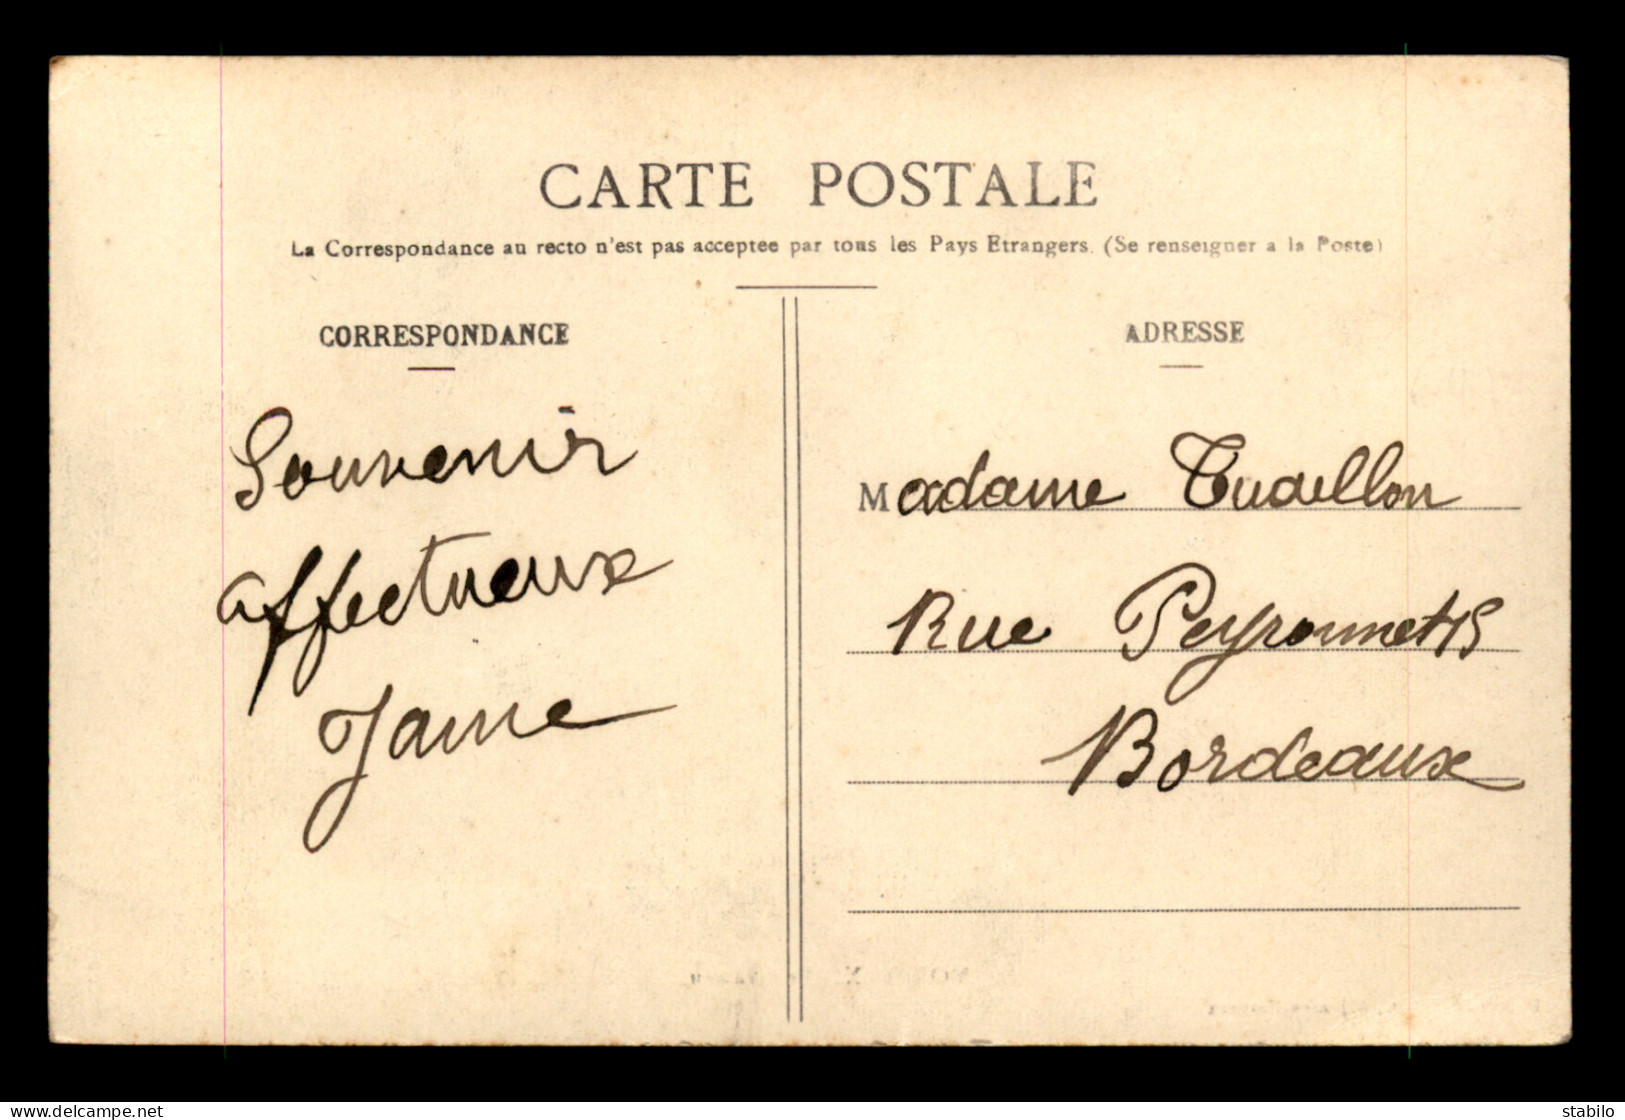 CARTE POSTALE
La Correspondance au recto n'est pas acceptee par tous les Pays Etrangers. (Se renseigner a la Poste)
CORRESPONDANCE
Souvenir
affectueux
ADRESSE
Madame Tuaillon
Rue Peyronnet
Bordeaux
delcampe.net
stabilo